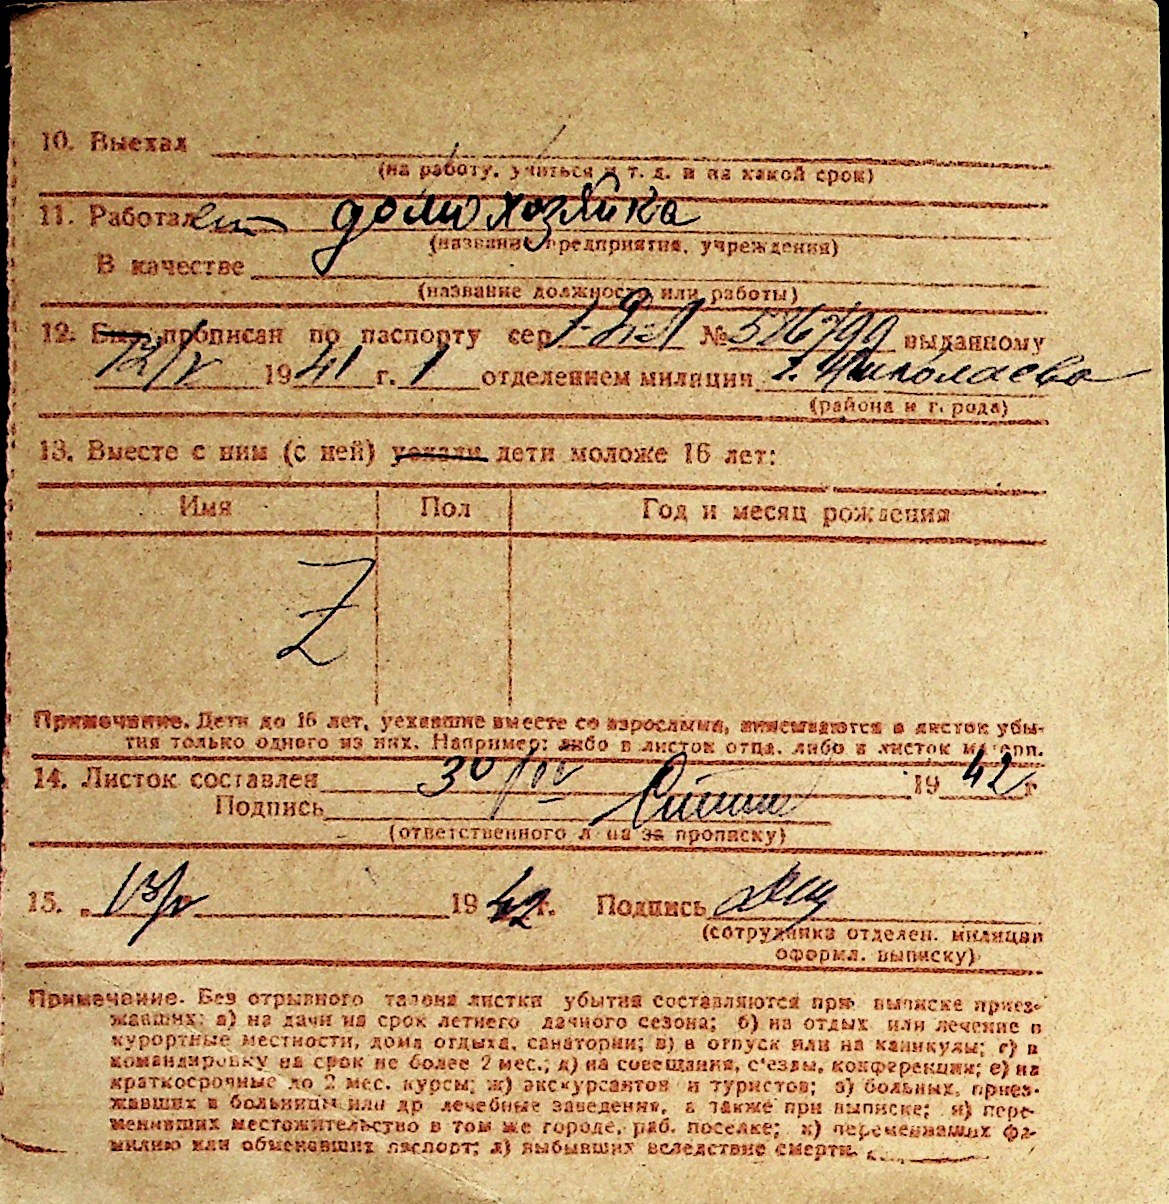 10. Выехал
(на работу, учиться и т. д. и на какой срок)
11. Работает домохозяйка
(название предприятия, учреждения)
В качестве
(название должности или работы)
12. Был прописан по паспорту сер № 586799 выданному
12/V 1941 г. 1 отделением милиции г. Николаева
(района и г. рода)
13. Вместе с ним (с ней) уехали дети моложе 16 лет:
Имя Пол Год и месяц рождения
Z
Примечание. Дети до 16 лет, уехавшие вместе со взрослыми, вписываются в листок убы-
тия только одного из них. Например: либо в листок отца, либо в листок матери.
14. Листок составлен 30/IV 1942 г
Подпись
(ответственного лица за прописку)
15. „13/V 1942 г. Подпись
(сотрудника отделен. милиции
оформл. выписку)
Примечание. Без отрывного талона листки убытия составляются при выписке приез-
жавших: а) на дачи на срок летнего дачного сезона; б) на отдых или лечение в
курортные местности, дома отдыха, санатории; в) в отпуск или на каникулы; г) в
командировку на срок не более 2 мес.; д) на совещания, с'езды, конференции; е) на
краткосрочные до 2 мес. курсы; ж) экскурсантов и туристов; з) больных, приез-
жавших в больницы или др лечебные заведения, а также при выписке; и) пере-
менивших местожительство в том же городе, раб. поселке; к) переменивших фа-
милию или обменявших паспорт; л) выбывших вследствие смерти.